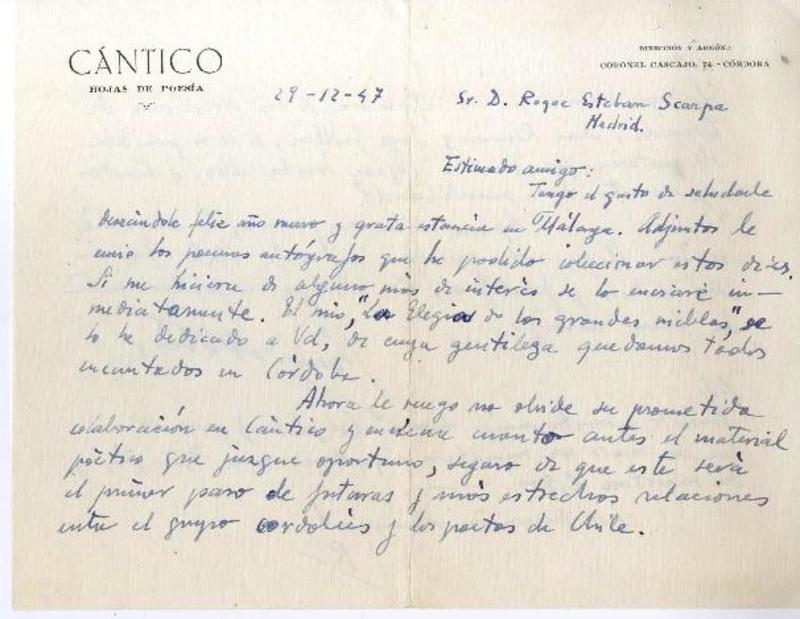 CÁNTICO
HOJAS DE POESÍA
DIRECCIÓN Y ADMÓN.:
CORONEL CASCAJO, 74 - CÓRDOBA
29-12-47
Sr. D. Roque Esteban Scarpa
Madrid.
Estimado amigo:
Tengo el gusto de saludarle
deseándole feliz año nuevo y grata estancia en Málaga. Adjuntos le
envio los poemas autógrafos que he podido coleccionar estos días.
Si me hiciera de alguno más de interés se lo enviaré in-
mediatamente. El mio, "La Elegia de las grandes nieblas," se
lo he dedicado a Vd, de cuya gentileza quedamos todos
encantados en Córdoba.
Ahora le ruego no olvide su prometida
colaboración en Cántico y cuanto antes el material
poético que juzgue oportuno, seguro de que este será
el primer paso de futuras y más estrechas relaciones
entre el grupo cordobés y los poetas de Chile.